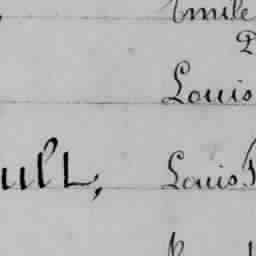 Emile
Louis
ull, Louis